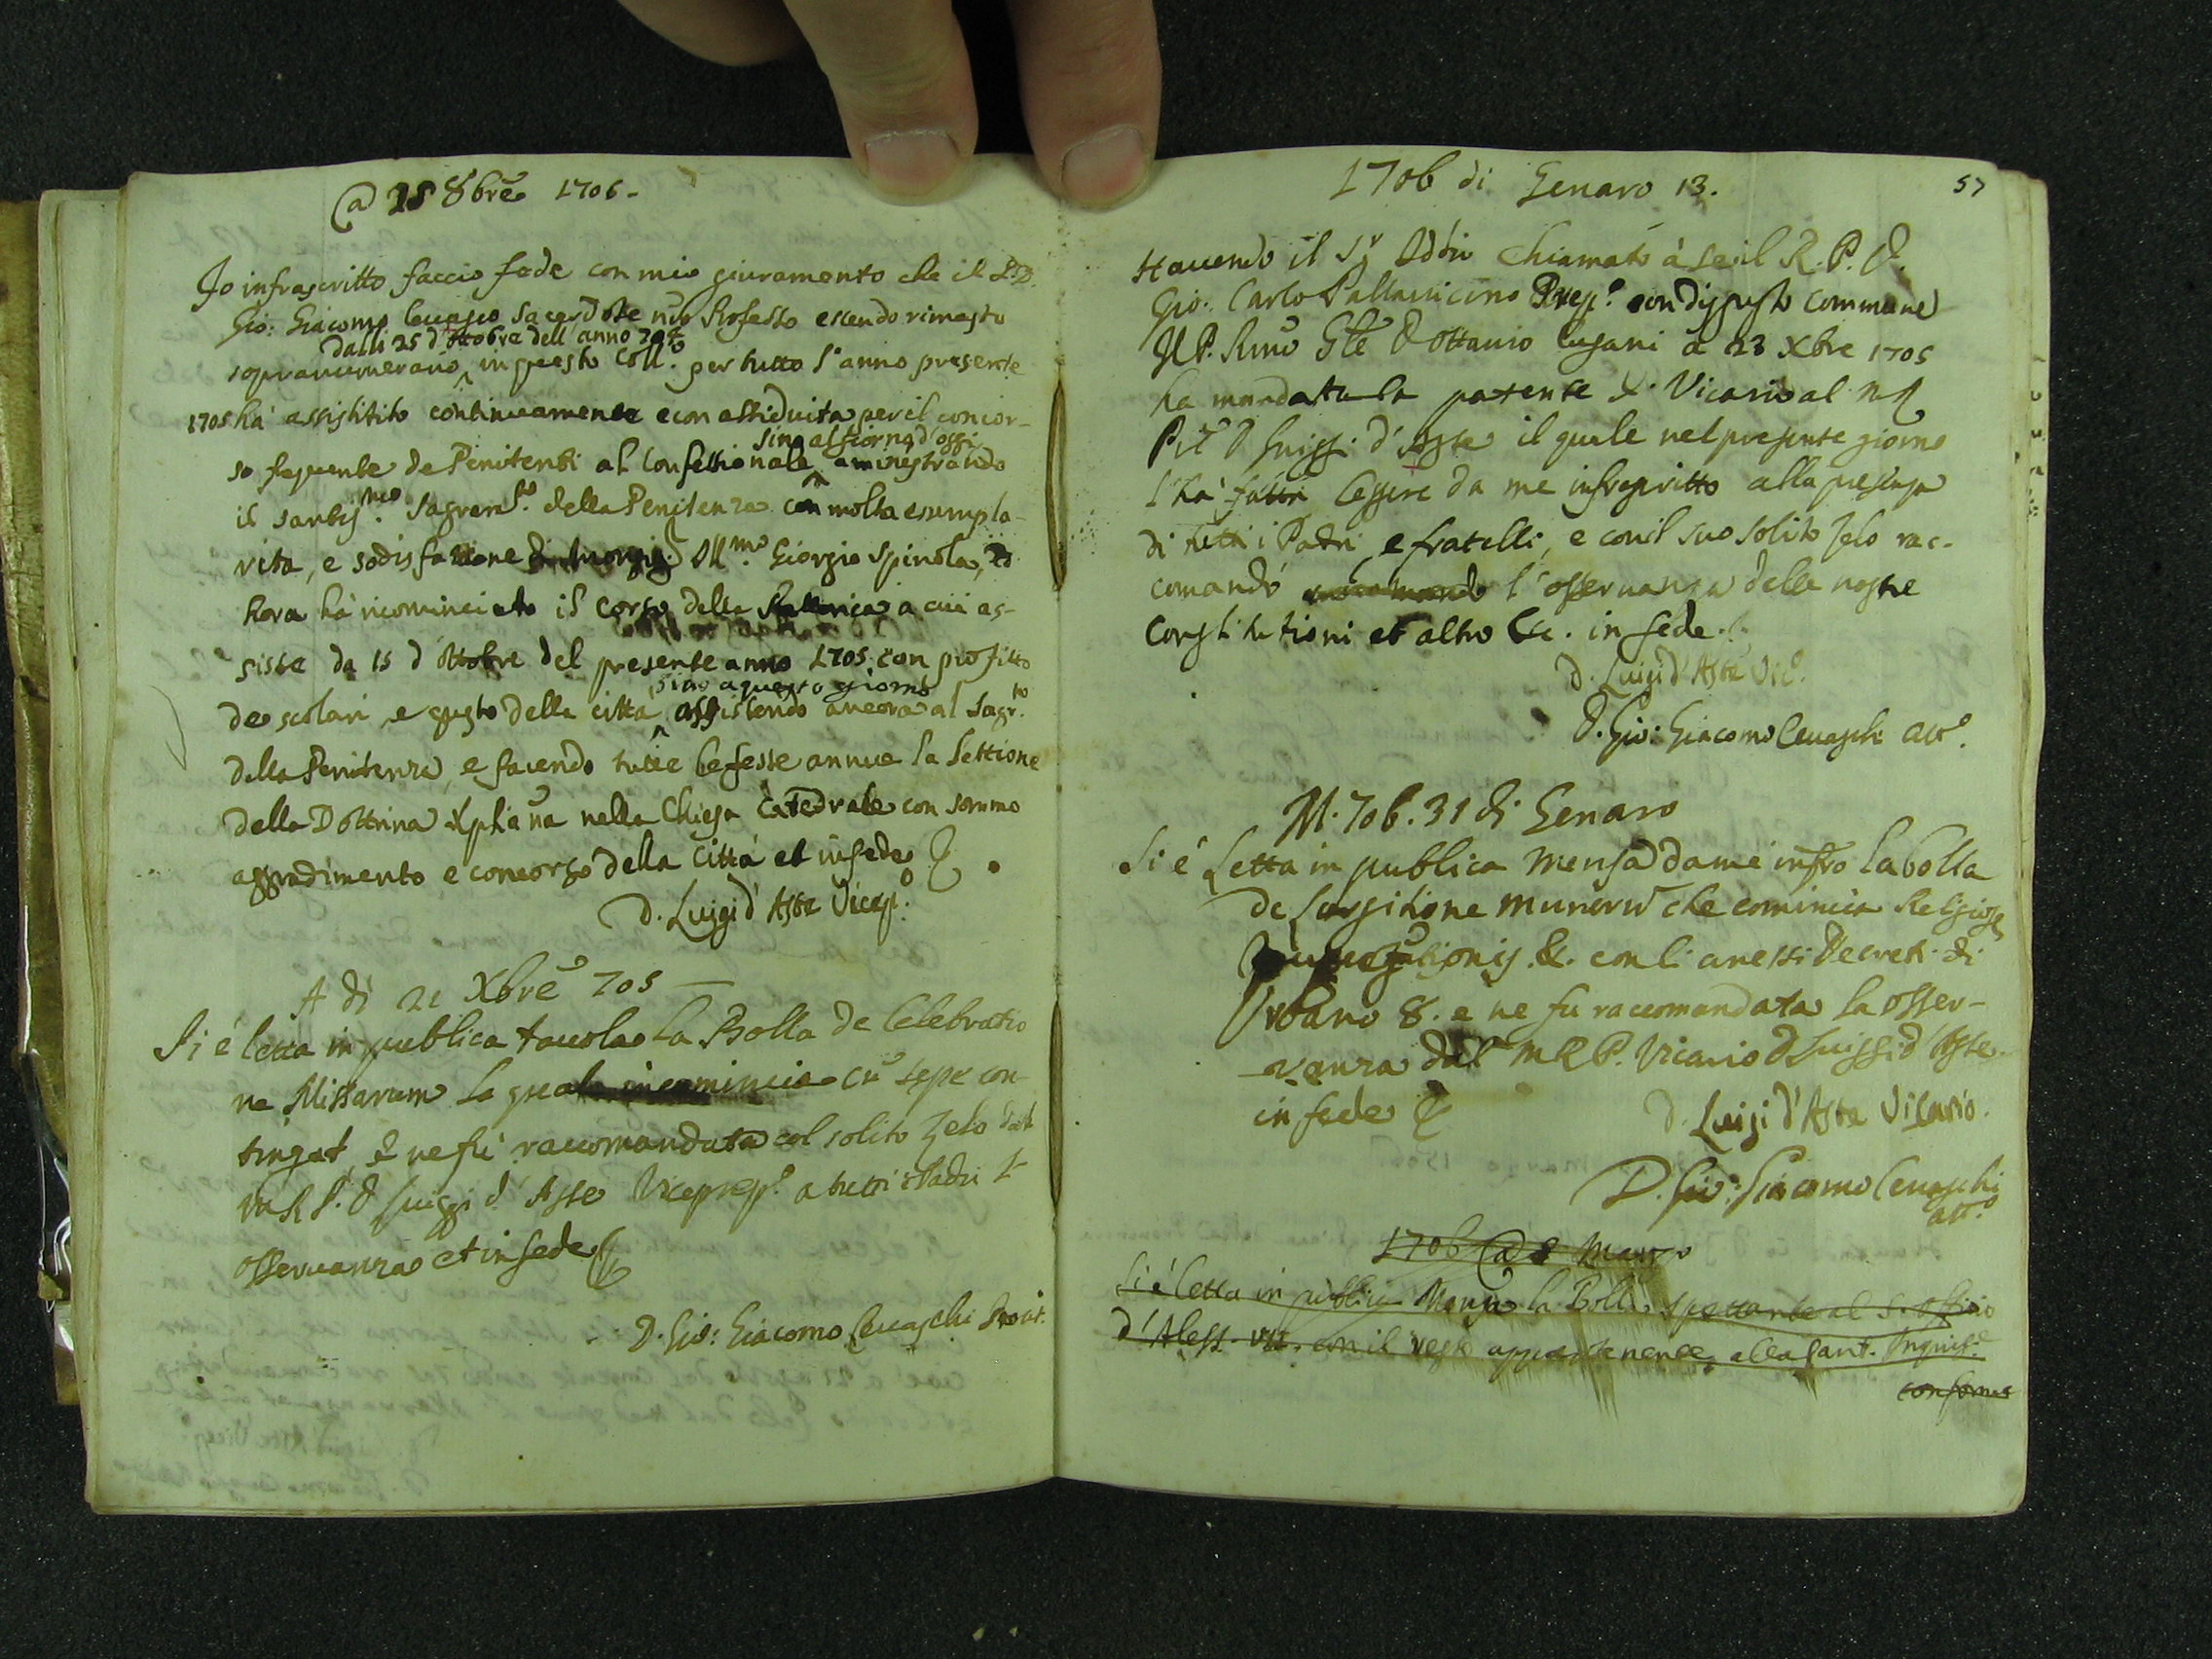 @ 15 8bre 1705-
Io infrascritto faccio fede con mio giuramento che il P.D.
Gio: Giacomo Ceuasco Sacerdote nr̃o Professo essendo rimasto
dalli 25 d'ottobre dell'anno 704
sopranumerario in questo Coll.o per tutto l'anno presente
1705 ha' assistito continuamente e con assiduita per il concor-
sino al giorno d'oggi
so frequente de Penitenti al Confessionale aministrando
il santis.mo Sagram.to della Penitenza con molta esempla-
rita, e sodisfatione Ill.mo Giorgio Spinola, ed
hora ha' ricominciato il corso della Rettorica a cui as-
siste da 15 d'ottobre del presente anno 1705. con profitto
sino a questo giorno
de scolari, e gusto della citta, assistendo ancora al Sagr.to
della Penitenza, e facendo tutte le feste annue la Lettione
della Dottrina Xp̃hiana nella Chiesa Catedrale con sommo
aggradimento e concorso della Città et in fede &
D. Luigi d'Aste Vicep.o
A dì 21 Xbrẽ 705 —
Si é letta in publica tauola la Bolla de Celebratio
ne Missarum la quale incomincia cũ sepe con
tingat, e ne fù raccomandata col solito zelo dal
M.R.P. D Luiggi d'Aste Viceprep.o a tutti i Padri l'
osseruanza et in fede &
D. Gio: Giacomo Ceuaschi
1706 di Genaro 13. 57
Hauendo il Sr. Iddio Chiamato à se il R. P. D.
Gio: Carlo Pallauicino Prep.o con disgusto commune
Il P. Rmo Gle D Ottauio Cusani à 23 Xbre 1705
ha mandatta la patente di Vicario al M
P D Luiggi d'Aste il quale nel presente giorno
l'ha' fatta leggere da me infrascritto alla presenza
di tutti i Padri e fratelli, e con il suo solito zelo rac-
comandó raccomandó l'osseruanza delle nostre
Constitutioni et altro &c. in fede.
D. Luigi d'Aste Vic.o
D. Gio: Giacomo Ceuaschi att.o
M. 706. 31 di Genaro
Si é Letta in publica Mensa da me infr̃o la bolla
de Largitione munerũ che comincia Religiose
&. con li anessi Decreti di
Vrbano 8. e ne fu raccomandata la osser-
vanza dal M R P. Vicario D Luiggi d'Aste
in fede &
D. Luigi d'Aste Vicario.
D. Gio: Giacomo Ceuaschi
att.o
1706 @ 8 Marzo
Si é letta in publica Mensa la Bolla spettante al S. Offitio
d'Aless. VII. con il resto appartenente alla Sant. Inquis.e
conforme